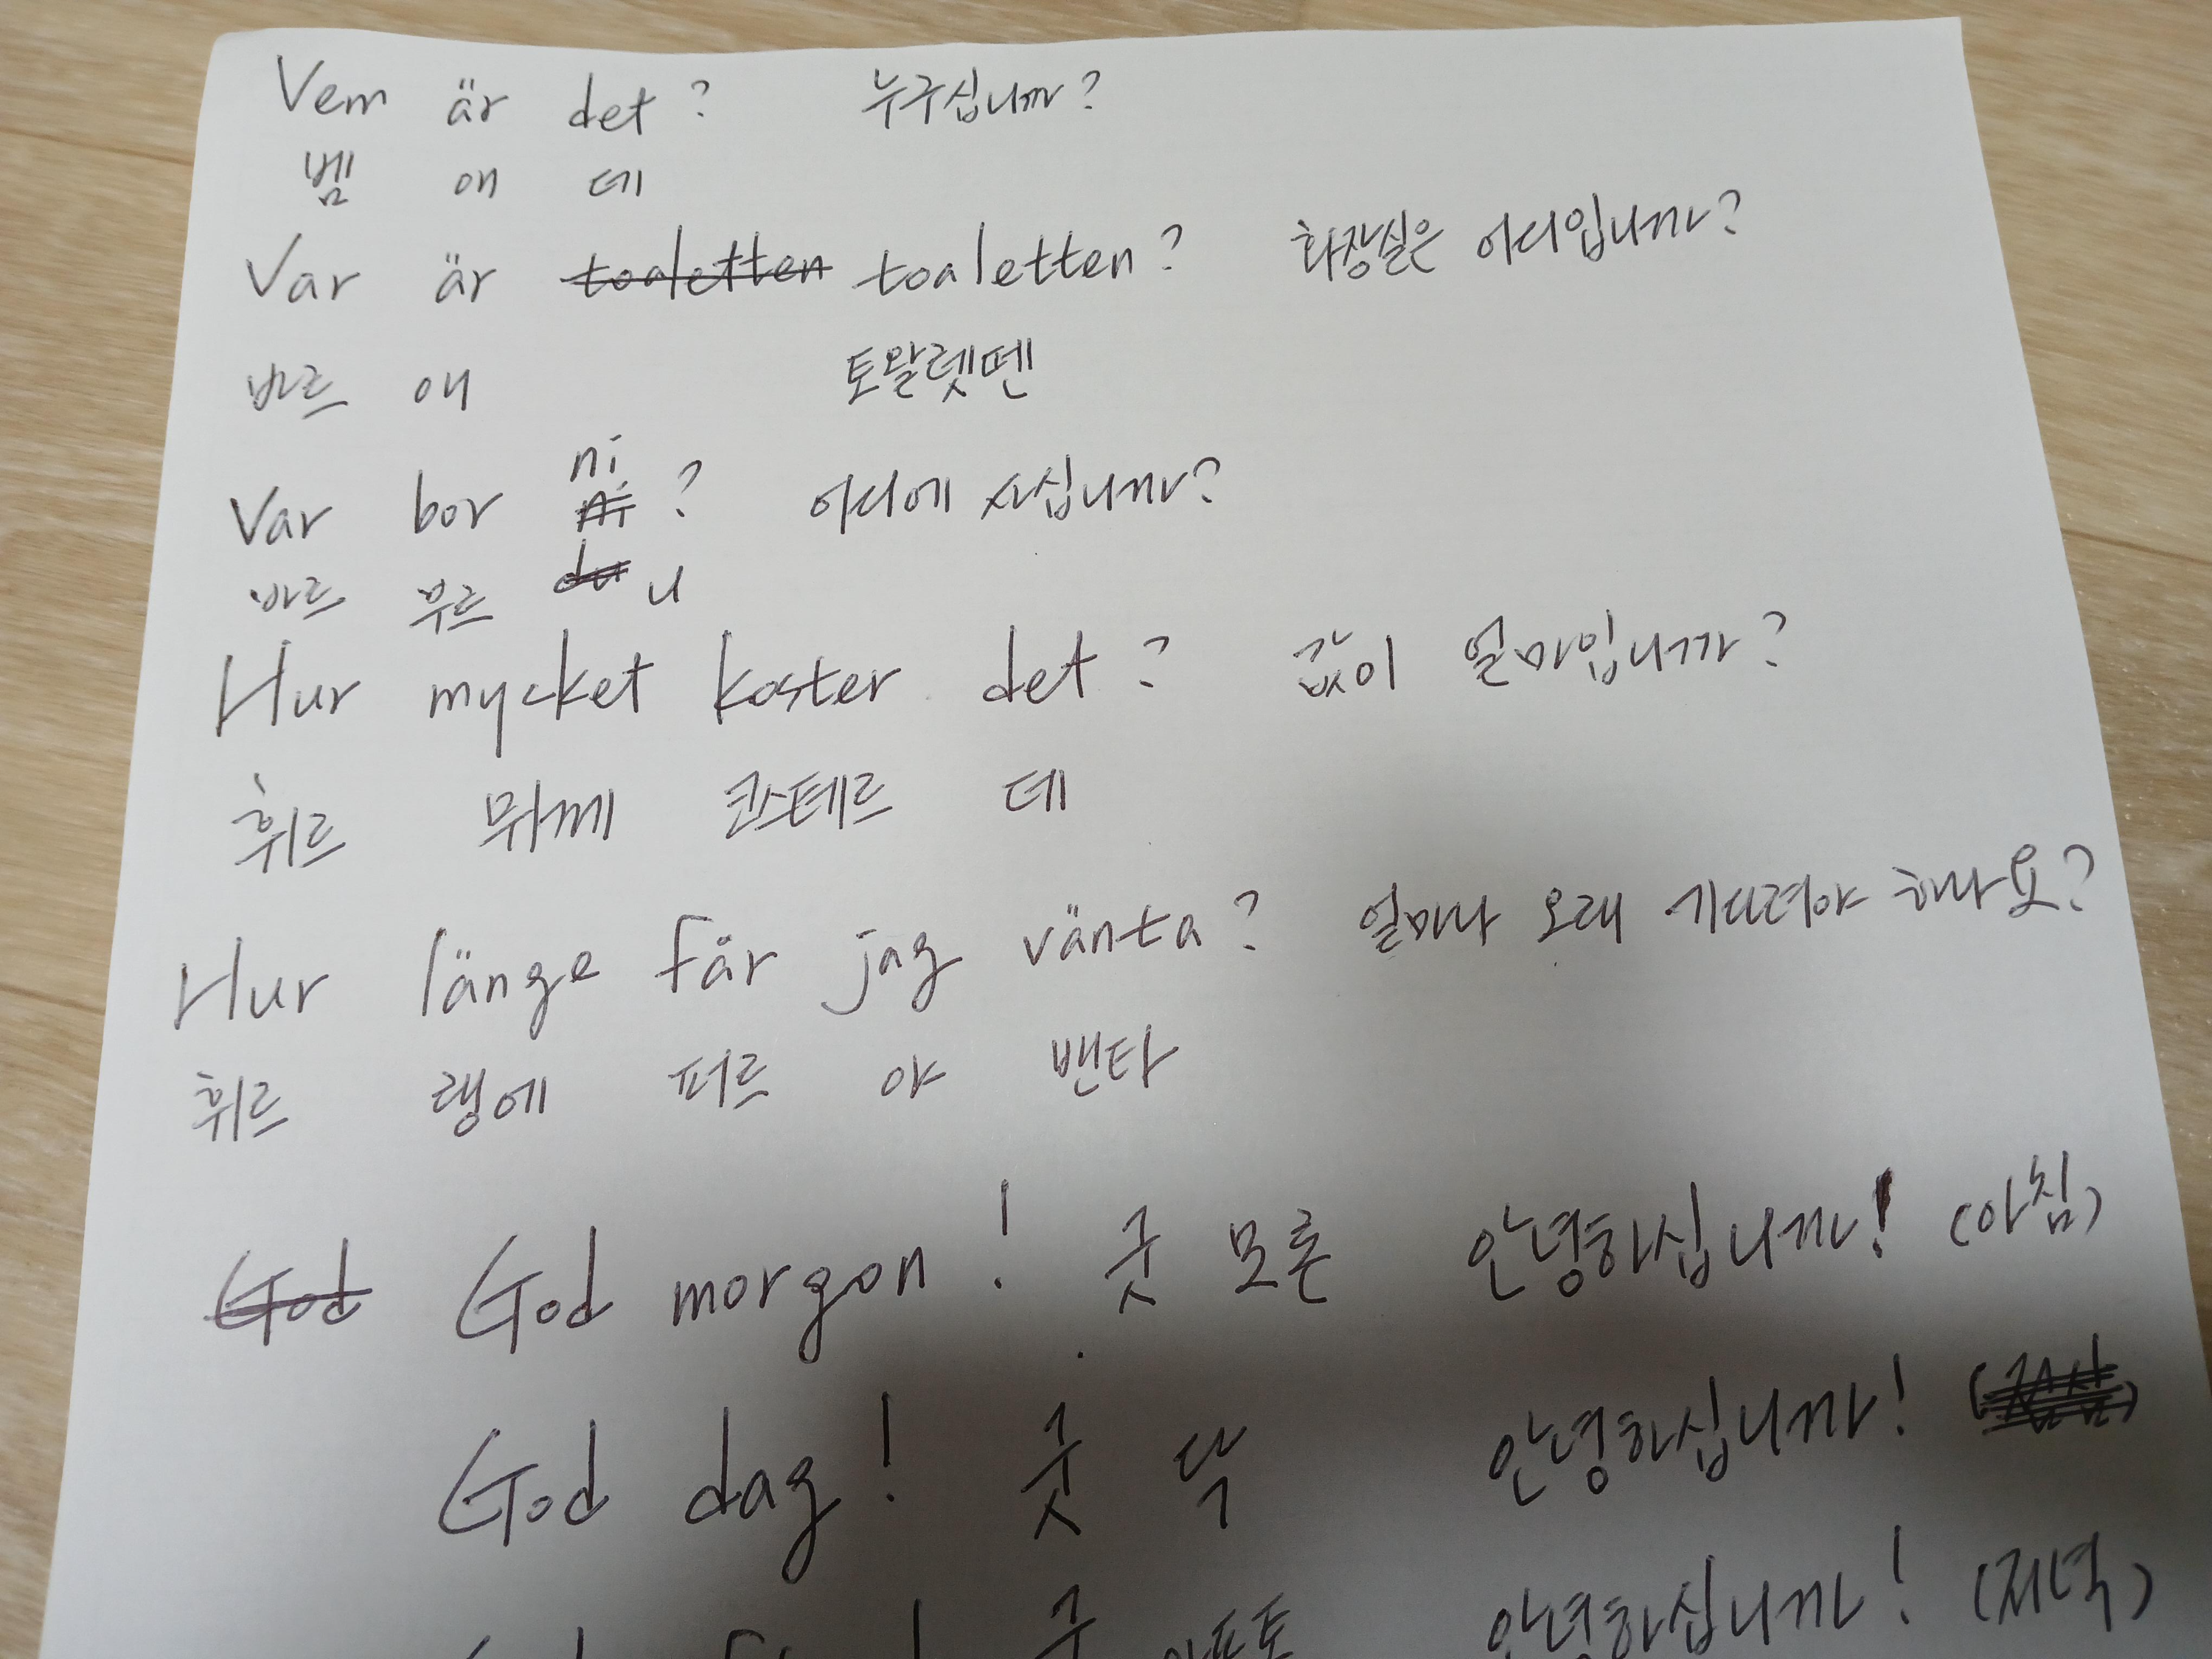 Vem är det? 누구십니까?
벰 애 데
Var är toaletten toaletten? 화장실은 어디입니까?
바르 애 토알렛뗀
ni
Var bor ni ? 어디에 사십니까?
바르 부르 du 니
Hur mycket koster det? 값이 얼마입니까?
휘르 뮈께 코스테르 데
Hur länge fär jag vänta? 얼마나 오래 기다려야 하나요?
휘르 랭에 퍼르 야 밴타
God God morgon! 굿 모론 안녕하십니까! (아침)
God dag! 굿 닥 안녕하십니까!
굿 아프토 안녕하십니까! (저녁)